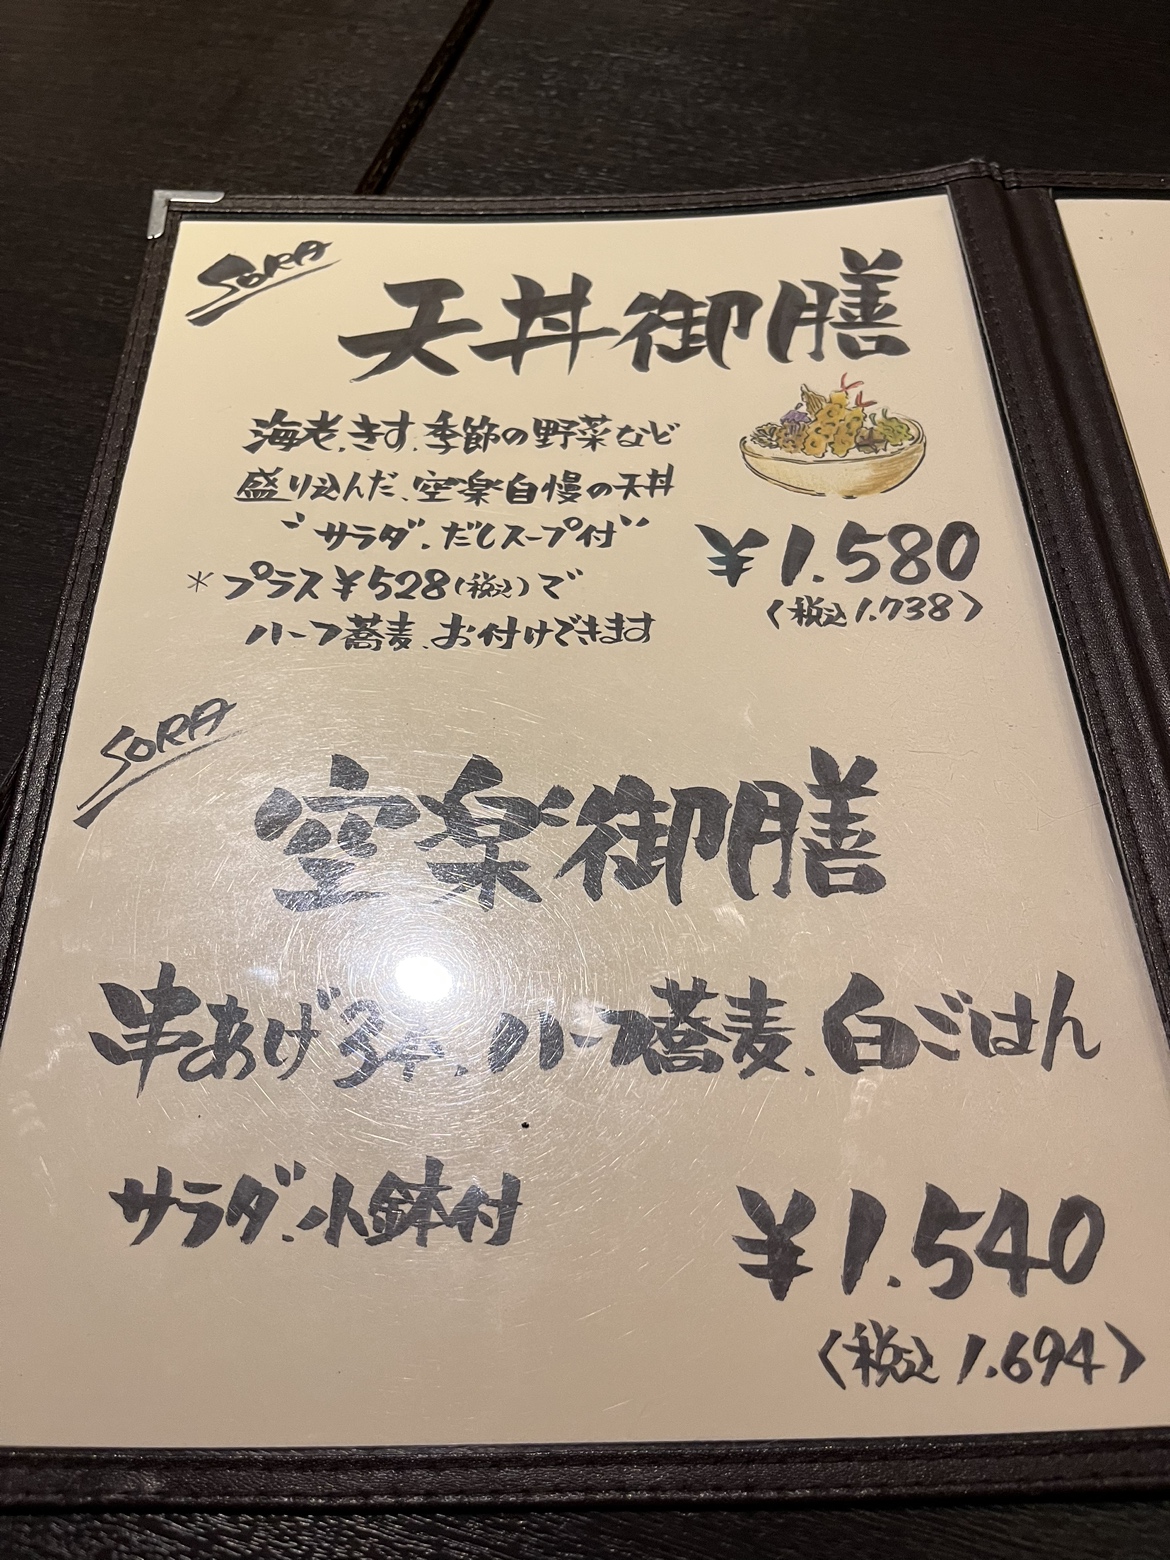 SORA
天丼御膳
海老、きす、季節の野菜など
盛り込んだ、空楽自慢の天丼
“サラダ、だしスープ付”
¥1.580
〈税込1.738〉
*プラス¥528(税込)で
ハーフ蕎麦、お付けできます
SORA
空楽御膳
串あげ3本、ハーフ蕎麦、白ごはん
サラダ、小鉢付
¥1.540
〈税込1.694〉